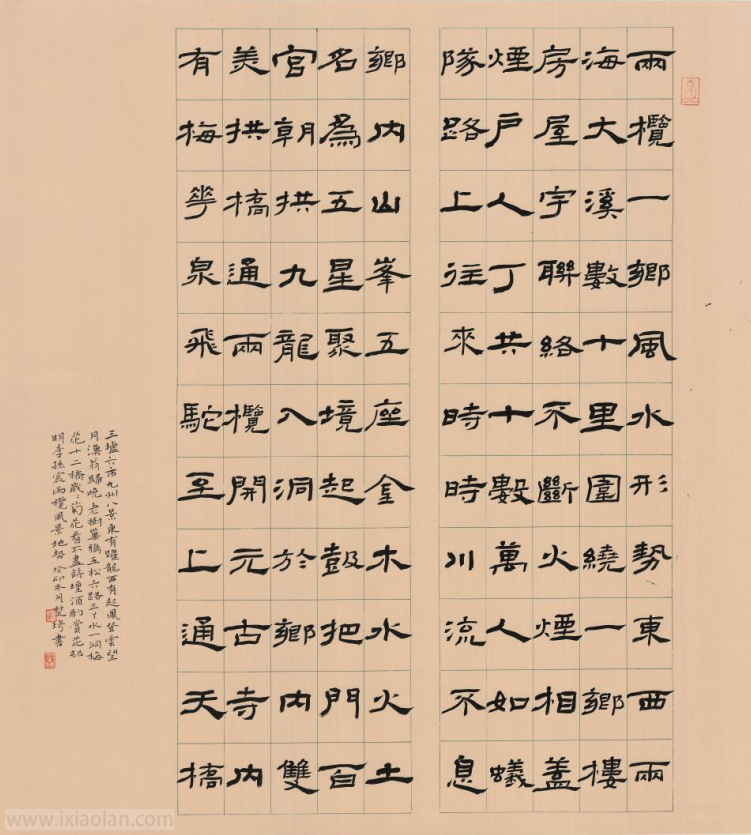 兩欖一鄉風水形勢東西兩
海大溪數十里圍繞一鄉樓
房屋宇聯絡不斷火煙相蓋
煙戶人丁共十數萬人如蟻
隊路上往來時時川流不息
鄉內山峯五座金木水火土
名為五星聚境起鼓把門百
官朝拱九龍入洞於鄉內雙
美拱橋通兩欖開元古寺內
有梅花泉飛駝至上通天橋
三墟六市九州八景東有躍龍西有起鳳登雲望
月漁翁歸晚老樹鴉五松六路三丫水一洞梅
花十二橋歲〻菊花看不盡詩壇酒酌賞花邨
明李孫宸兩欖風景地勢 癸卯冬月楚琦書
www.ixiaolan.com